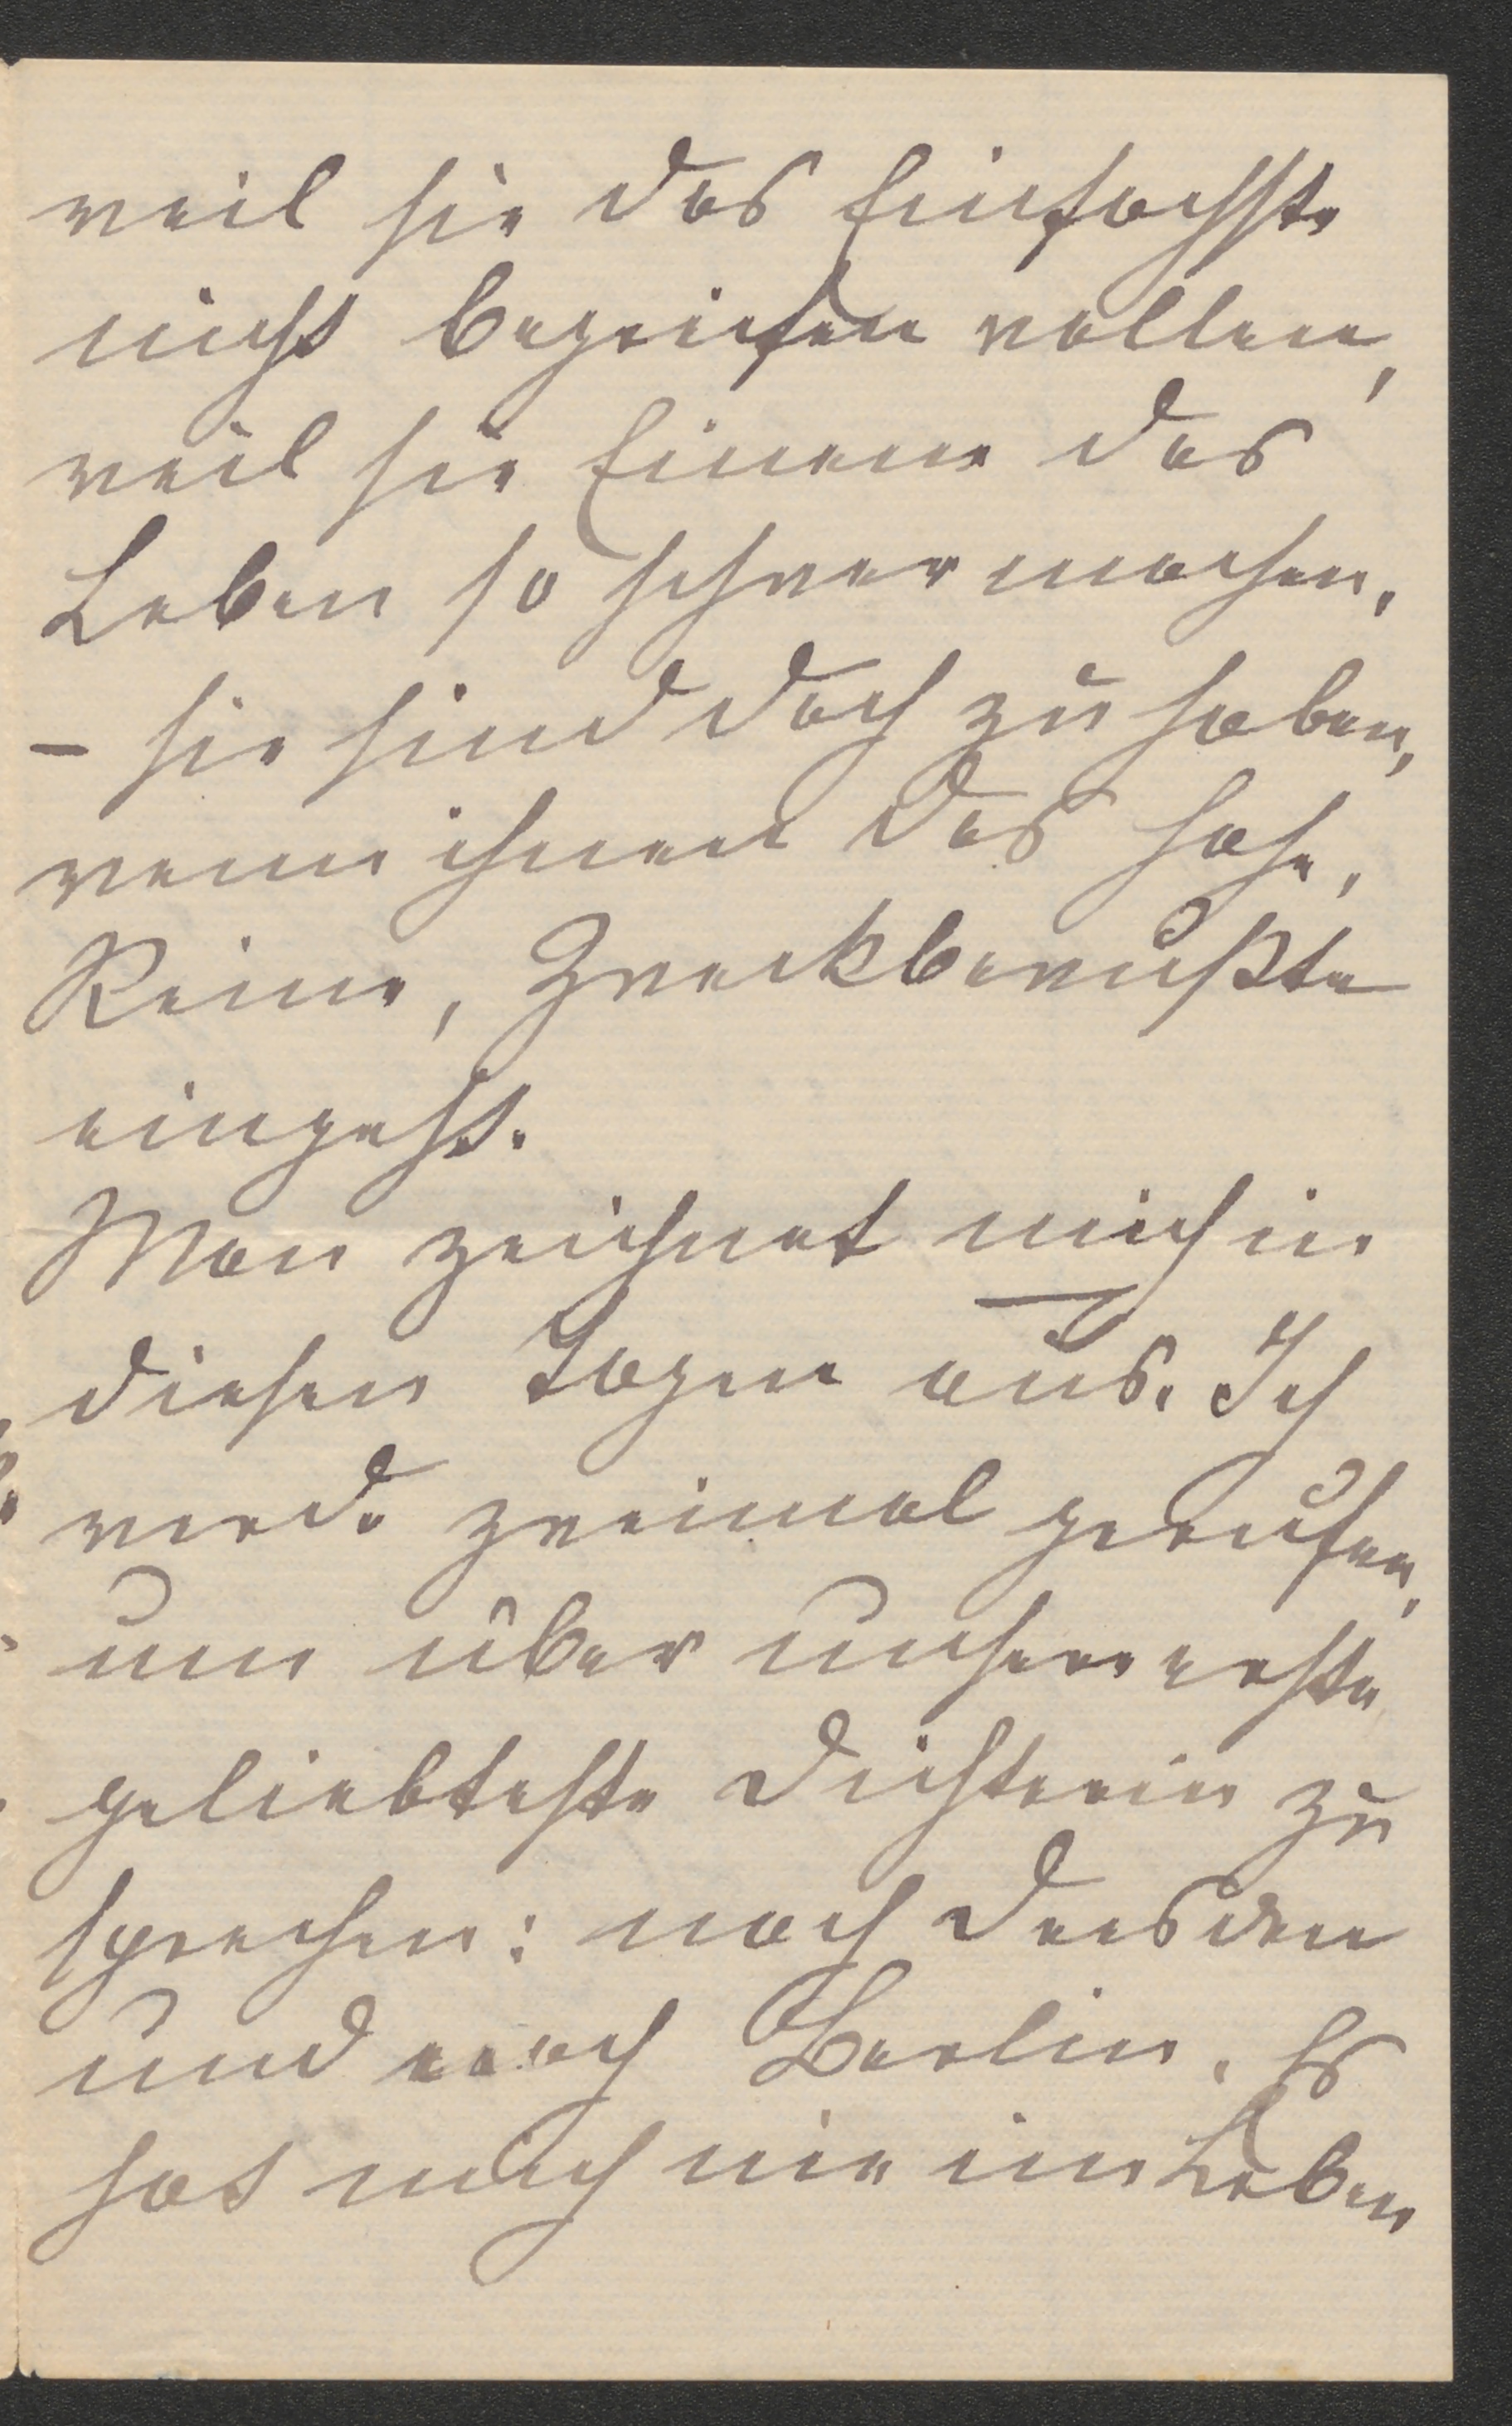 weil sie das Einfachste
nicht begreifen wollen,
weil sie Einem das
Leben so schwer machen,
– sie sind doch zu haben,
wenn ihnen das Hohe,
Reine, Zweckbewußte
eingeht.
Man zeichnet mich in
diesen Tagen aus. Ich
werde zweimal gerufen,
um über unsere erste
geliebteste Dichterin zu
sprechen: nach Dresden
und nach Berlin. Es
hat mich nie im Leben